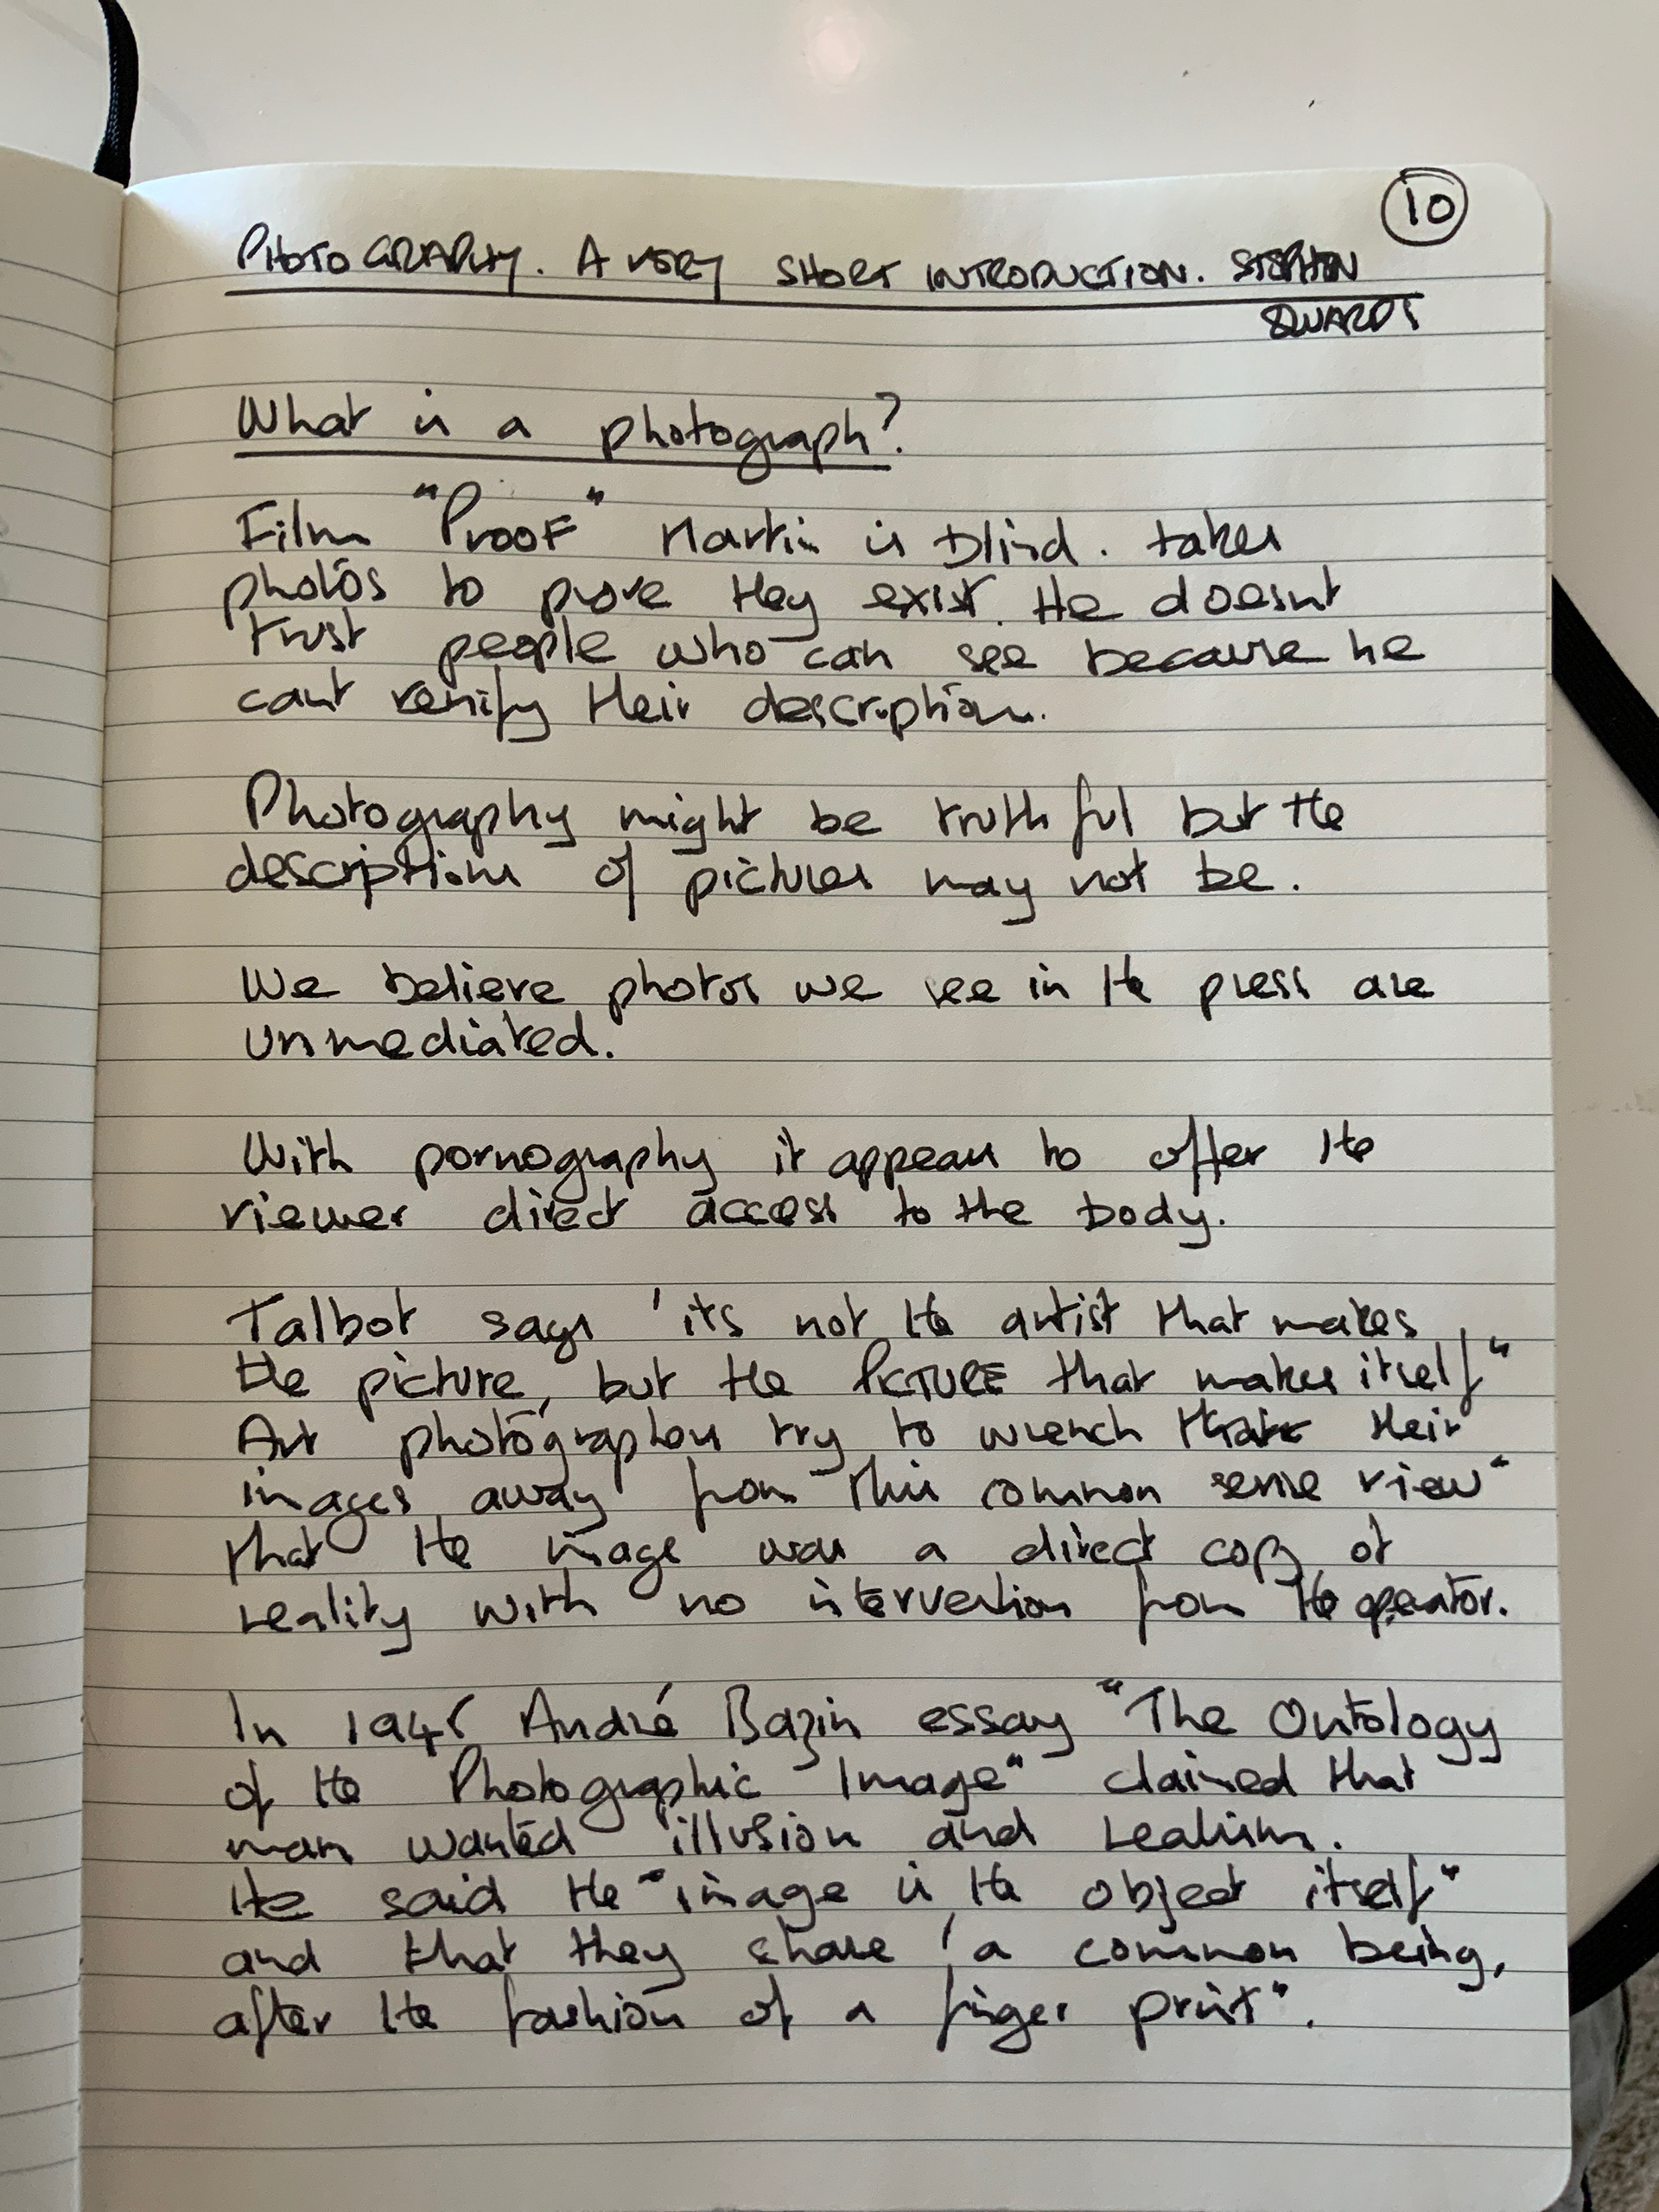 10
PHOTOGRAPHY. A VERY SHORT INTRODUCTION. STEPHEN
EDWARDS
What is a photograph?
Film "PROOF" Martin is blind. takes
photos to prove they exist. He doesnt
trust people who can see because he
cant verify their description.
Photography might be truthful but the
descriptions of pictures may not be.
We believe photos we see in the press are
unmediated.
With pornography it appears to offer the
viewer direct access to the body.
Talbot says 'its not the artist that makes
the picture, but the PICTURE that makes itself"
Art photographers try to wrench their
images away from "this common sense view"
that the image was a direct copy of
reality with no intervention from the operator.
In 1945 André Bazin essay "The Ontology
of the Photographic Image" claimed that
man wanted illusion and realism.
He said the "image is the object itself"
and that they share 'a common being,
after the fashion of a finger print".